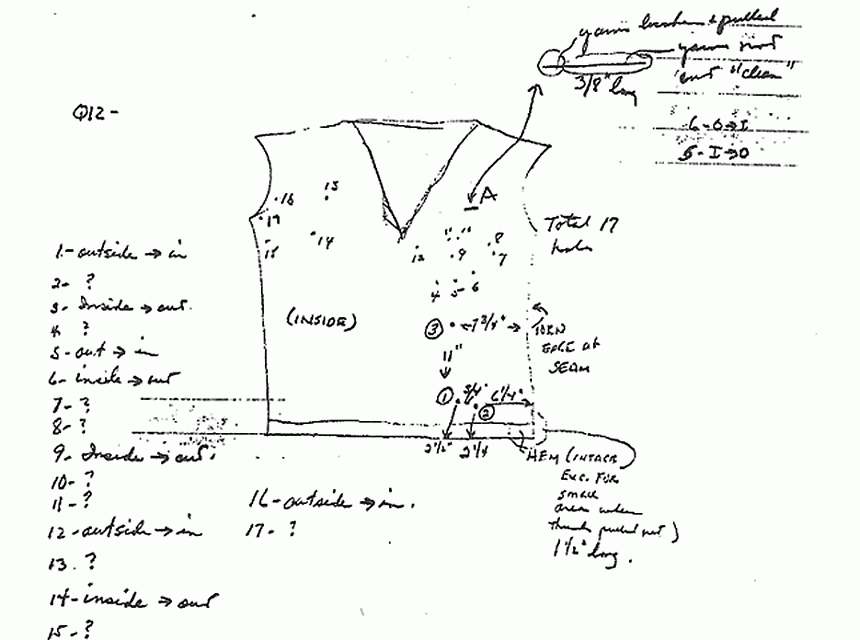 yarns broken & pulled
yarns not
cut "clean"
3/8" long
Q12-
6-O→I
5-I→O
A
16
13
17
14
15
Total 17
holes
11 10
8
12
9
7
4 5 6
1.-outside → in
2- ?
3- Inside → out.
4 ?
5-out → in
6- inside → out
7-?
8-?
9- Inside → out.
10- ?
11-?
12-outside → in
13. ?
14-inside → out
15-?
16-outside → in.
17- ?
(INSIDE)
3 ← 7 3/4" →
TORN
EDGE AT
SEAM
11"
1 3/4" 6 1/4"
2
2 1/2" 2 1/4
HEM (INTACT
EXC. FOR
small
area when
threads pulled out)
1 1/2" long.